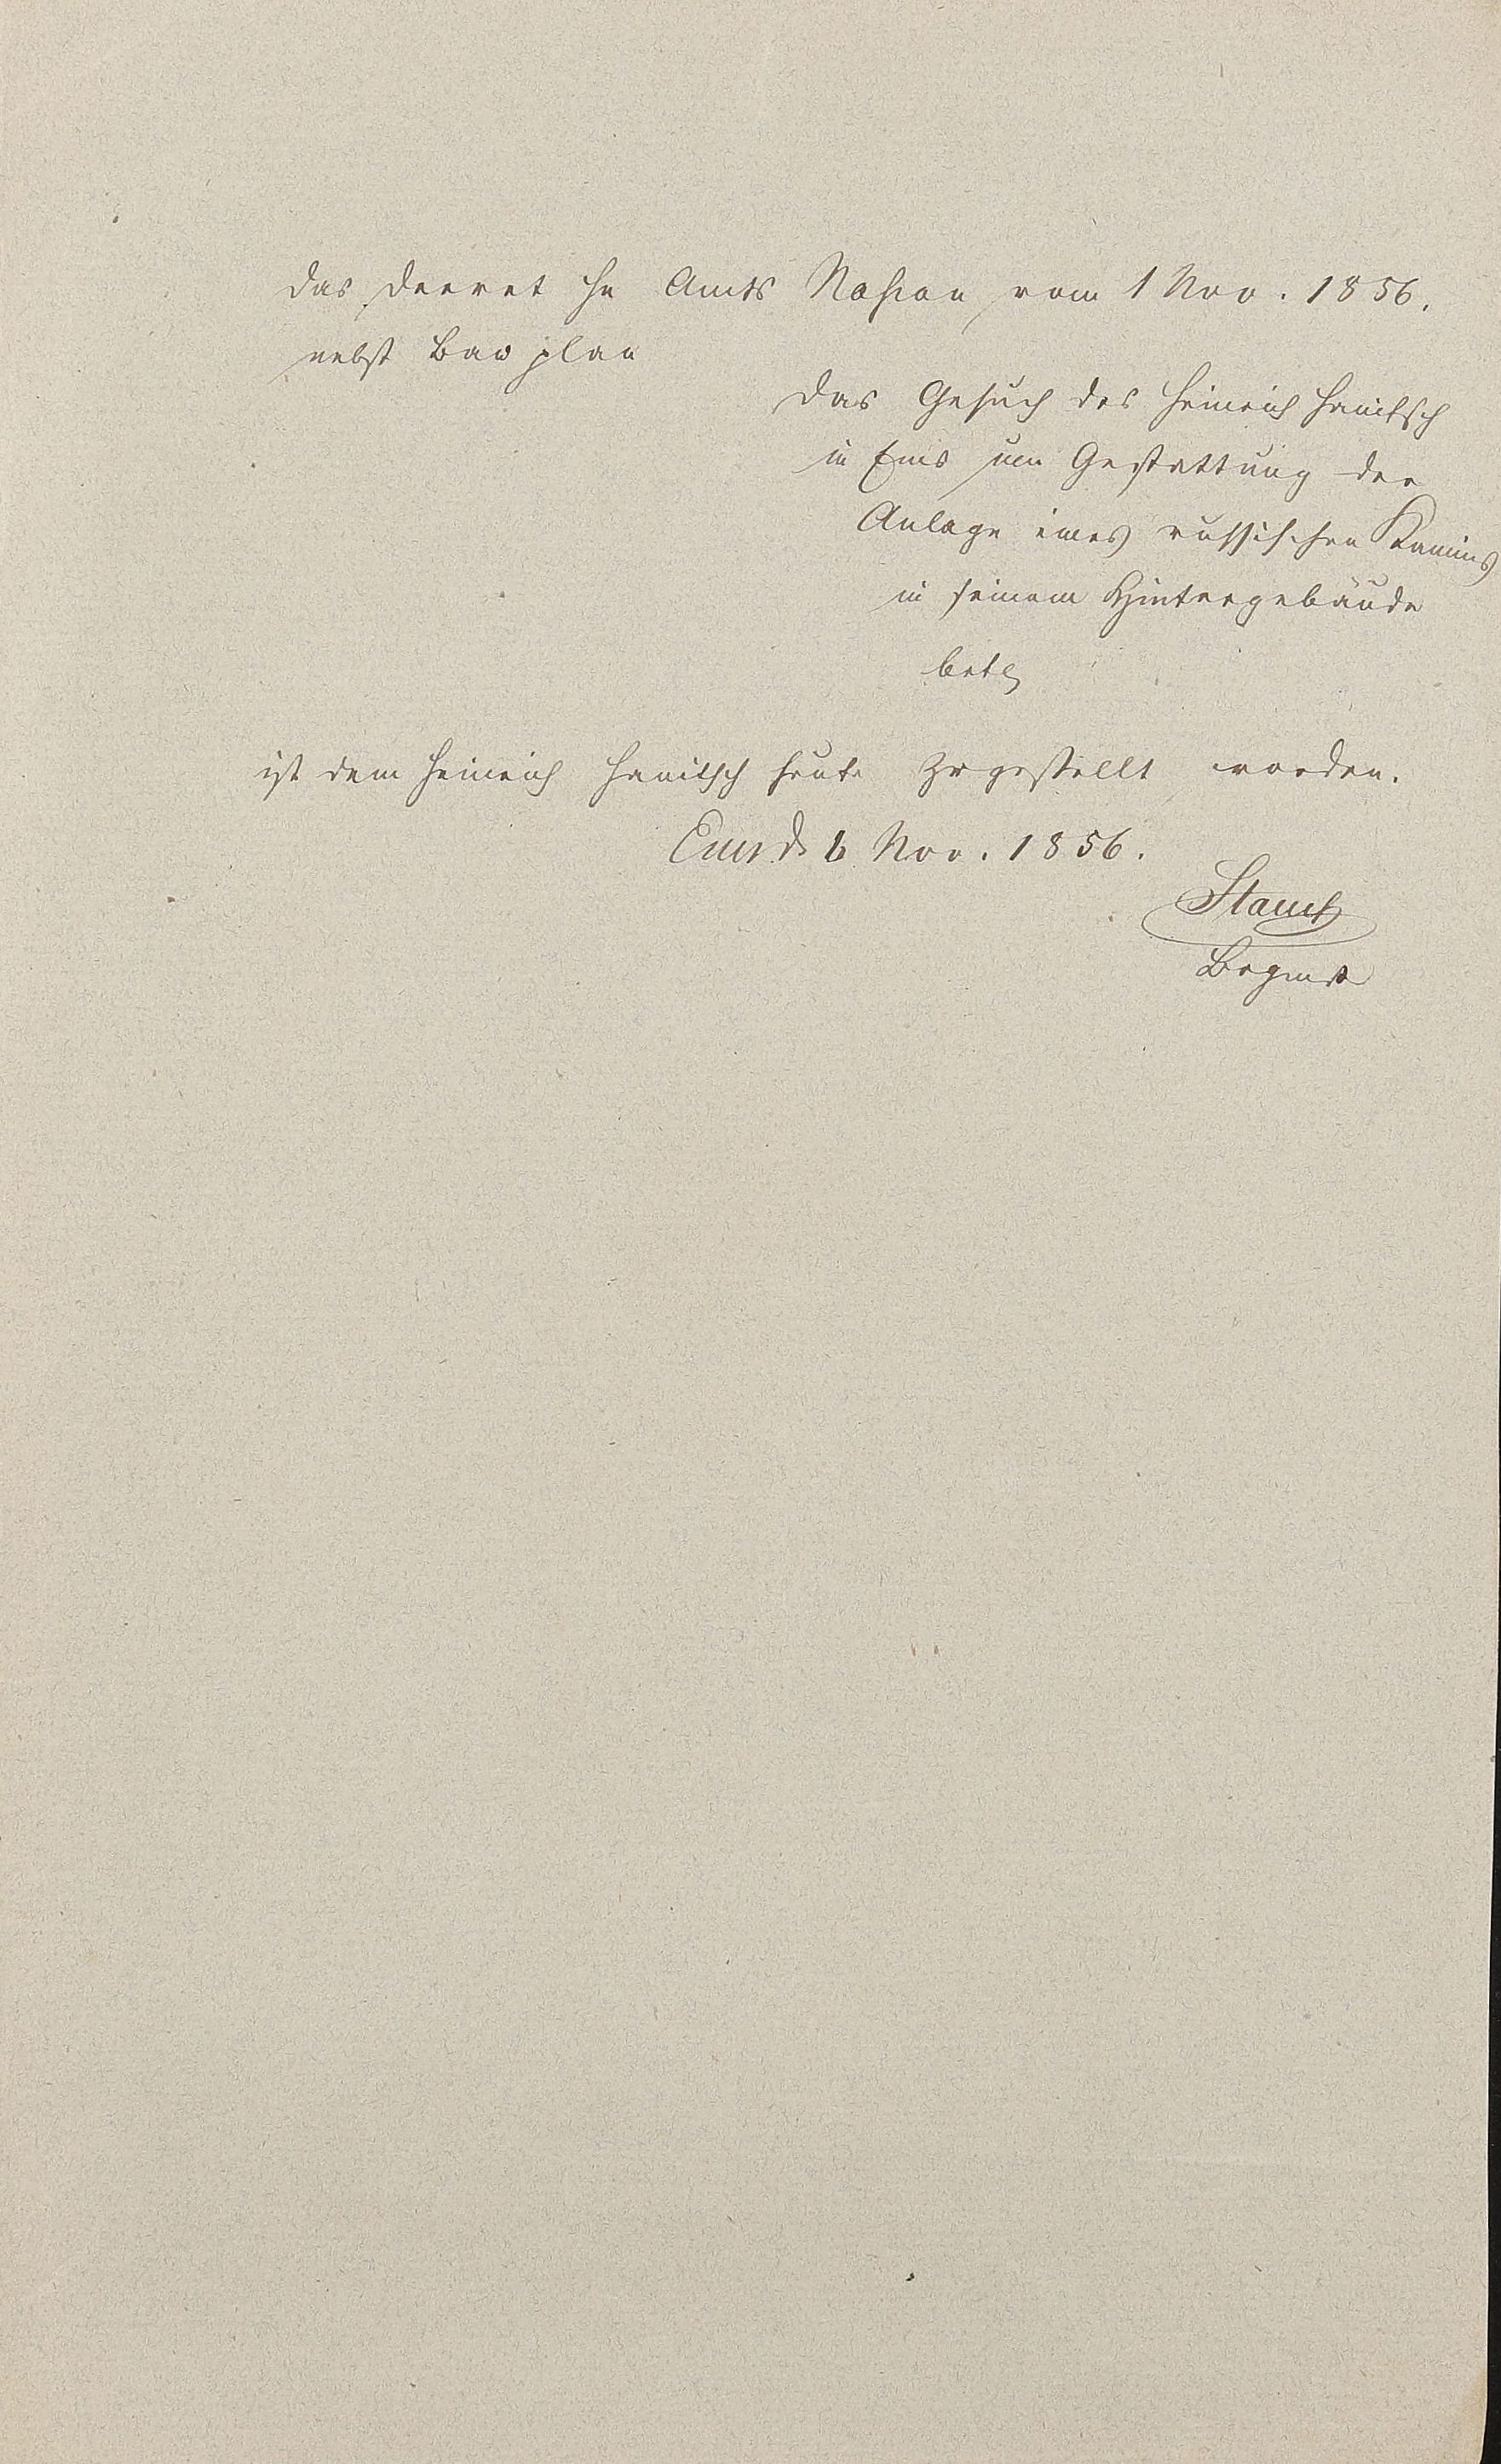 Das Decret Hz Amts Nassau vom 1 Nov. 1856.
nebst Bauplan
Das Gesuch des Heinrich Hanitsch
in Ems um Gestattung der
Anlage eines russischen Kamins
in seinem Hintergebäude
betr
ist dem Heinrich Hanitsch heute zugestellt worden.
Ems d 6 Nov. 1856.
Brgmstr